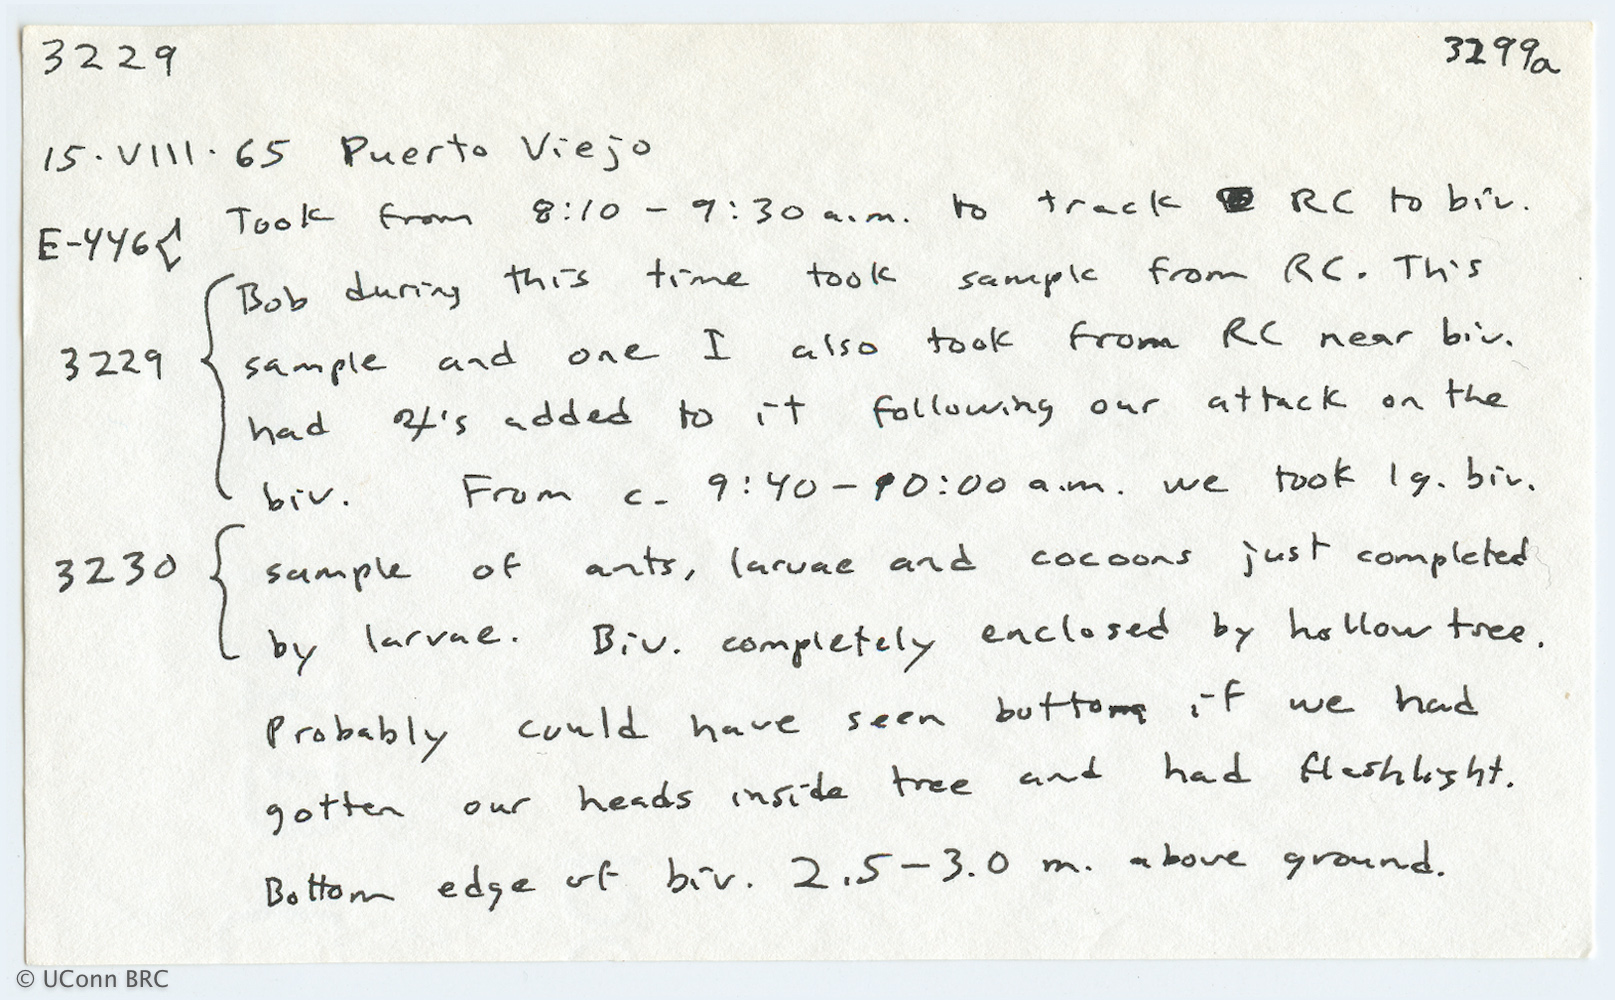 3229 3299a
15·VIII·65 Puerto Viejo
E-446{ Took from 8:10 – 9:30 a.m. to track RC to biv.
Bob during this time took sample from RC. This
3229 { sample and one I also took from RC near biv.
had 's added to it following our attack on the
biv. From c. 9:40 – 10:00 a.m. we took lg. biv.
3230 { sample of ants, larvae and cocoons just completed
by larvae. Biv. completely enclosed by hollow tree.
Probably could have seen bottom if we had
gotten our heads inside tree and had flashlight.
Bottom edge of biv. 2.5 – 3.0 m. above ground.
© UConn BRC